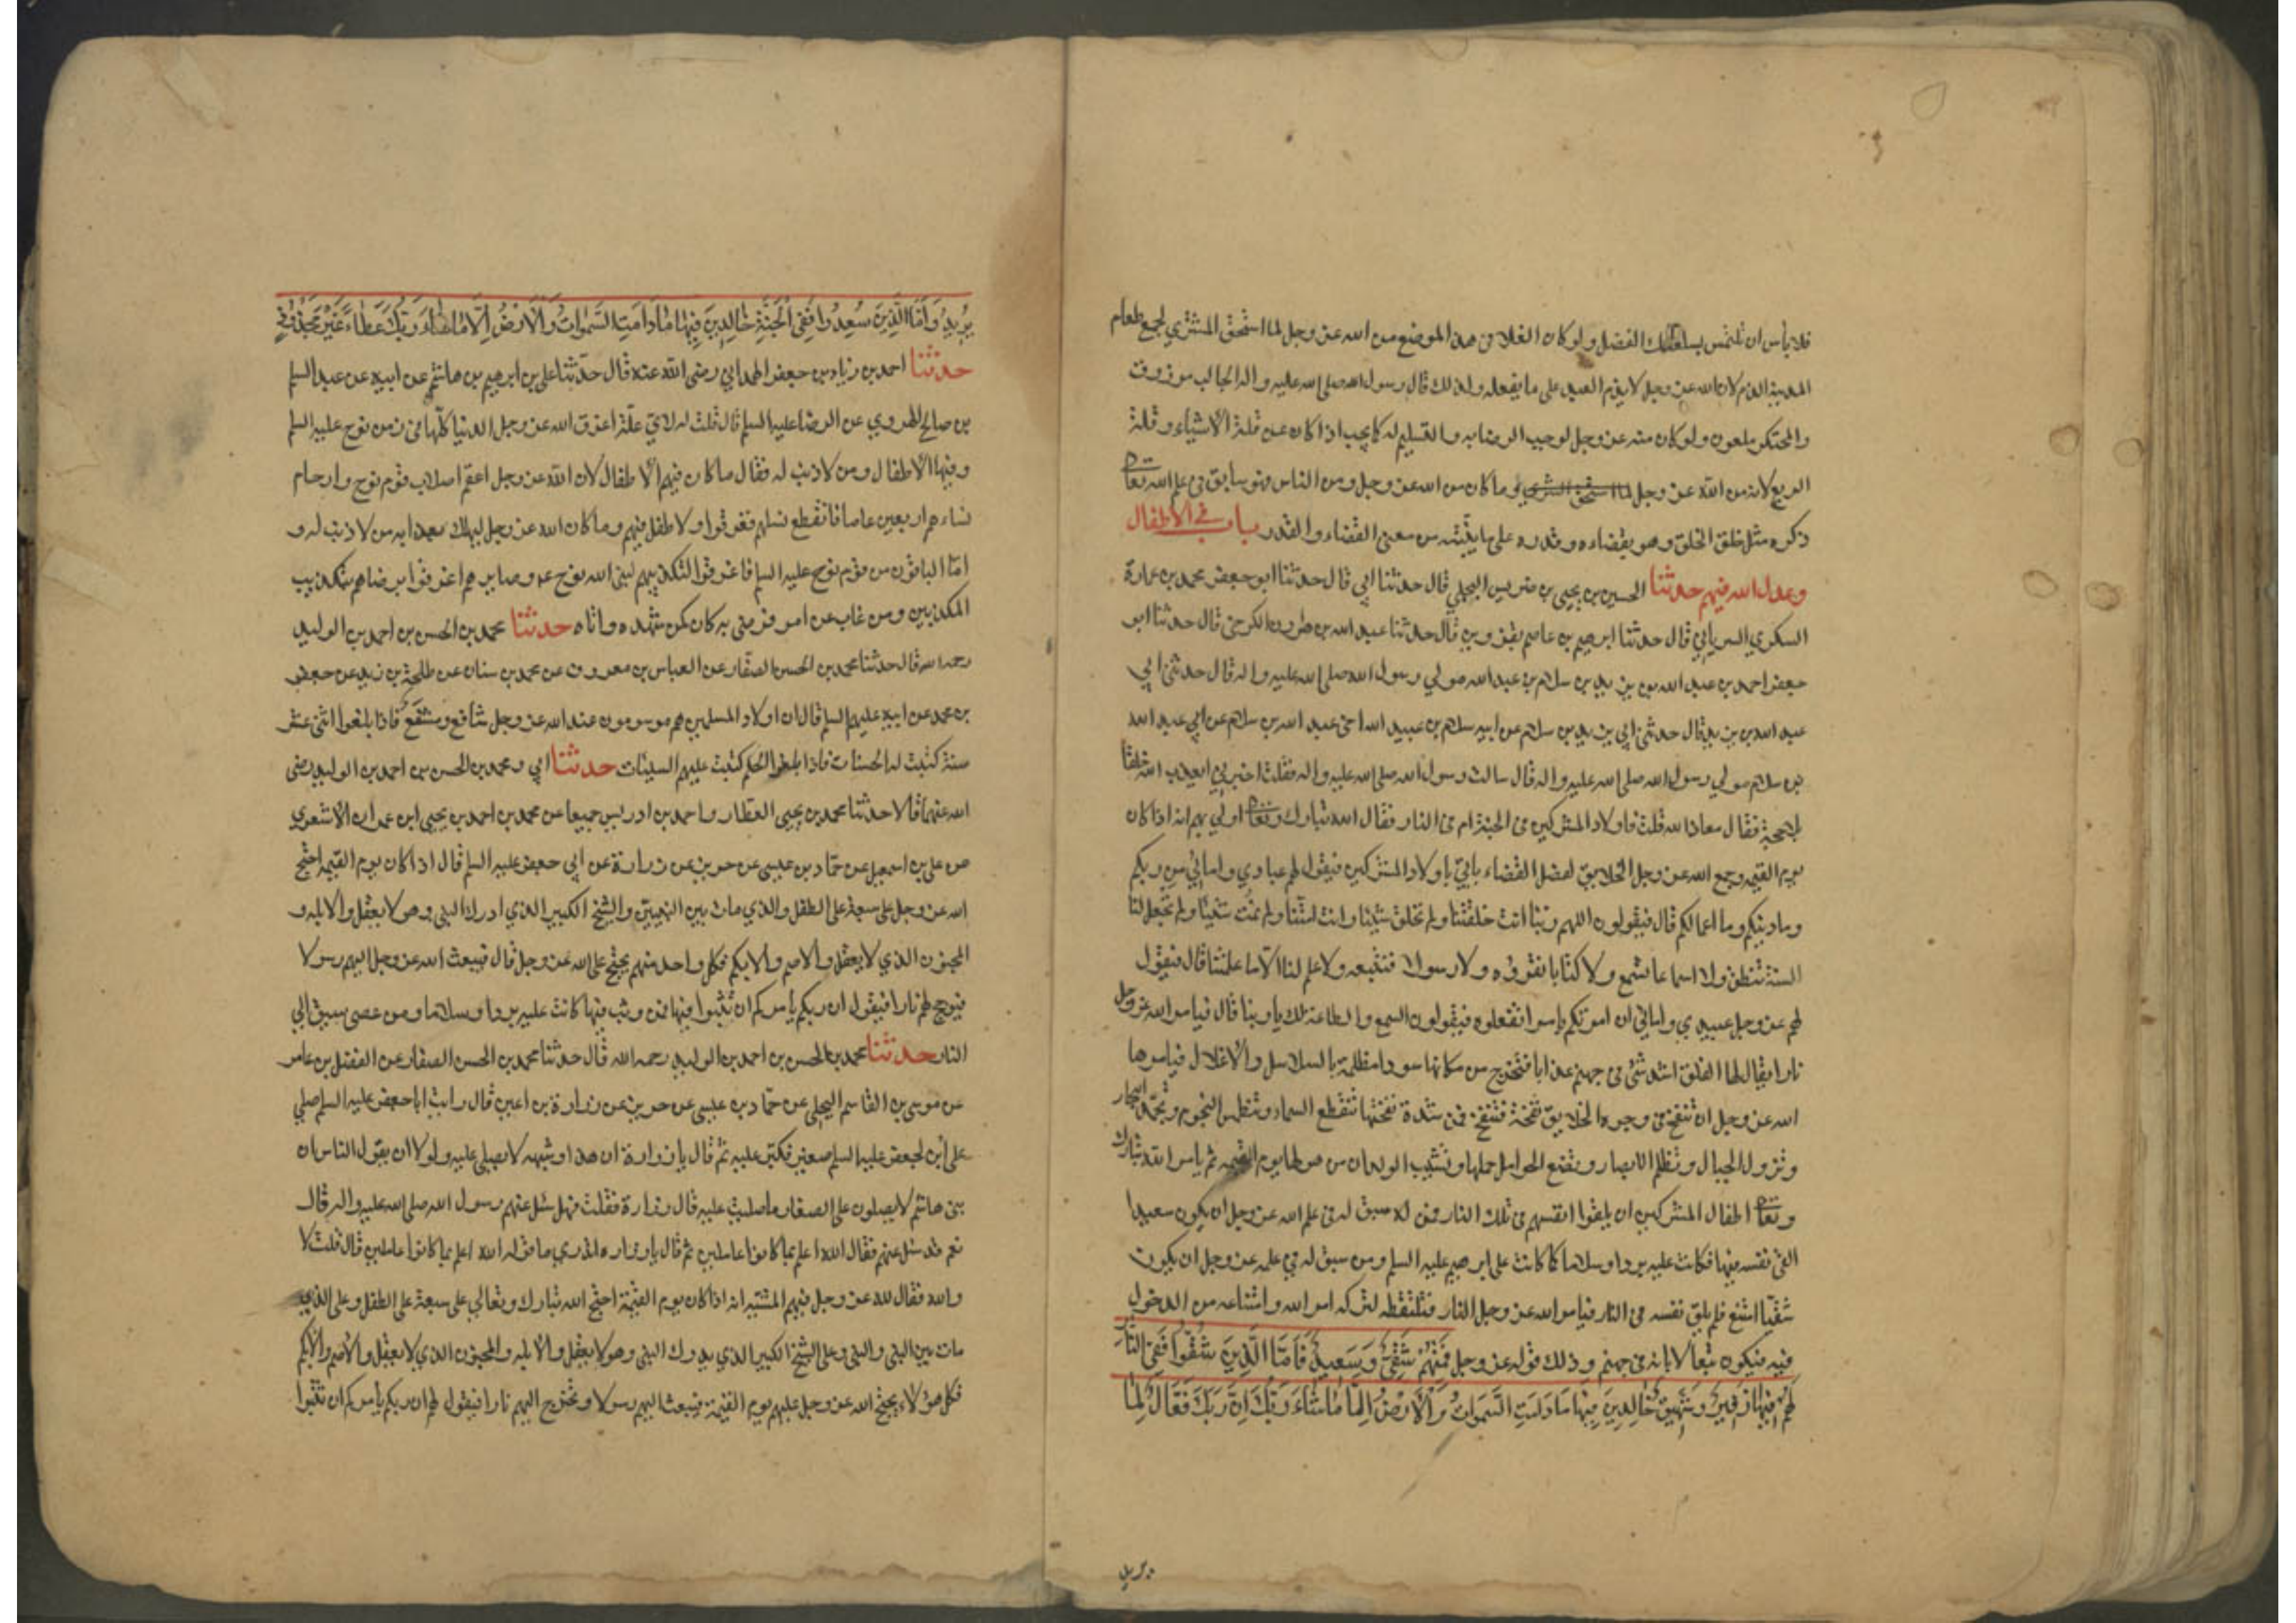 فلا باس ان تلتمس بسلعتك الفضل ولو كان الغلا في هذا الموضع من الله عز وجل لما استحق المشتري لجميع طعام
المدينة الذم لان الله عز وجل لا يذم العبد على ما يفعله ولذلك قال رسول الله صلى الله عليه واله الجالب مرزوق
والمحتكر ملعون ولو كان منه عز وجل لوجب الرضا به والتسليم له كما يجب اذا كان عن قلة الاشياء وقلة
الريع لانه من الله عز وجل وما كان من الله عز وجل ومن الناس فهو سابق في علم الله تعا
ذكره مثل خلق الخلق وهو بقضائه وقدره على ما بينته من معنى القضاء والقدر باب في الاطفال
وعدل الله فيهم حدثنا الحسين بن يحيى بن ضريس البجلي قال حدثنا ابي قال حدثنا ابو جعفر محمد بن عمارة
السكري السرياني قال حدثنا ابرهيم بن عاصم بقزوين قال حدثنا عبد الله بن هرون الكرخي قال حدثنا ابو
جعفر احمد بن عبد الله بن يزيد بن سلام بن عبد الله مولي رسول الله صلى الله عليه واله قال حدثني ابي
عبد الله بن يزيد قال حدثني ابي يزيد بن سلام عن ابيه سلام بن عبيد الله اخي عبد الله بن سلام عن ابي عبد الله
بن سلام مولي رسول الله صلى الله عليه واله قال سالت رسول الله صلى الله عليه واله فقلت اخبرني ايعذب الله خلقا
بلا حجة فقال معاذ الله قلت فاولاد المشركين في الجنة ام في النار فقال الله تبارك وتعا اولي بهم انه اذا كان
يوم القيمه وجمع الله عز وجل الخلايق لفصل القضاء ياتي باولاد المشركين فيقول لهم عبادي وامائي من ربكم
وما دينكم وما اعمالكم قال فيقولون اللهم ربنا انت خلقتنا ولم نخلق شيئا وانت امتنا ولم نمت شيئا ولم تجعل لنا
السنة تنطق ولا اسماعا تسمع ولا كتابا نقرؤه ولا رسولا فنتبعه ولا علم لنا الا ما علمتنا قال فيقول
لهم عز وجل عبيدي وامائي ان امرتكم بامر اتفعلوه فيقولون السمع والطاعة لك يا ربنا قال فيامر الله عز وجل
نارا يقال لها الفلق اشد شئ في جهنم عذابا فتخرج من مكانها سودا مظلمة بالسلاسل والاغلال فيامرها
الله عز وجل ان تنفخ في وجوه الخلايق نفخة فتنفخ فمن شدة نفختها تنقطع السماء وتنطمس النجوم وتجمد البحار
وتزول الجبال وتظلم الابصار وتضع الحوامل حملها وتشيب الولدان من هولها يوم القيمه ثم يامر الله تبارك
وتعا اطفال المشركين ان يلقوا انفسهم في تلك النار فمن سبق له في علم الله عز وجل ان يكون سعيدا
القى نفسه فيها فكانت عليه بردا وسلاما كما كانت على ابرهيم عليه السلم ومن سبق له في علمه عز وجل ان يكون
شقيا امتنع فلم يلق نفسه في النار فيامر الله عز وجل النار فتلتقطه لتركه امر الله وامتناعه من الدخول
فيه فيكون تبعا لابائه في جهنم وذلك قوله عز وجل فَمِنْهُمْ شَقِيٌّ وَسَعِيدٌ فَاَمَّا الَّذِينَ شَقُوا فَفِي النَّارِ
لَهُمْ فِيهَا زَفِيرٌ وَشَهِيقٌ خَالِدِينَ فِيهَا مَا دَامَتِ السَّمَوَاتُ وَالْاَرْضُ اِلَّا مَا شَاءَ رَبُّكَ اِنَّ رَبَّكَ فَعَّالٌ لِمَا
يريد
يُرِيدُ وَاَمَّا الَّذِينَ سُعِدُوا فَفِي الْجَنَّةِ خَالِدِينَ فِيهَا مَا دَامَتِ السَّمَوَاتُ وَالْاَرْضُ اِلَّا مَا شَاءَ رَبُّكَ عَطَاءً غَيْرَ مَجْذُوذٍ
حدثنا احمد بن زياد بن جعفر الهمداني رضى الله عنه قال حدثنا علي بن ابرهيم بن هاشم عن ابيه عن عبد السلم
بن صالح الهروي عن الرضا عليه السلم قال قلت له لاي علة اغرق الله عز وجل الدنيا كلها في زمن نوح عليه السلم
وفيها الاطفال ومن لا ذنب له فقال ما كان فيهم الاطفال لان الله عز وجل اعقم اصلاب قوم نوح وارحام
نساءهم اربعين عاما فانقطع نسلهم فغرقوا ولا طفل فيهم وما كان الله عز وجل ليهلك بعذابه من لا ذنب له و
امّا الباقون من قوم نوح عليه السلم فاغرقوا لتكذيبهم لنبي الله نوح ع وسايرهم اغرقوا برضاهم بتكذيب
المكذبين ومن غاب عن امر فرضي به كان كمن شهده واتاه حدثنا محمد بن الحسن بن احمد بن الوليد
رحمه الله قال حدثنا محمد بن الحسن الصفار عن العباس بن معروف عن محمد بن سنان عن طلحة بن زيد عن جعفر
بن محمد عن ابيه عليهم السلم قال ان اولاد المسلمين هم موسومون عند الله عز وجل شافع ومشفع فاذا بلغوا اثنى عشر
سنة كتبت له الحسنات فاذا بلغوا الحلم كتبت عليهم السيئات حدثنا ابي ومحمد بن الحسن بن احمد بن الوليد رضى
الله عنهما قالا حدثنا محمد بن يحيى العطار واحمد بن ادريس جميعا عن محمد بن احمد بن يحيى ابن عمران الاشعري
عن علي بن اسمعيل عن حماد بن عيسى عن حريز عن زرارة عن ابي جعفر عليه السلم قال اذا كان يوم القيمه احتج
الله عز وجل على سبعة على الطفل والذي مات بين النبيين والشيخ الكبير الذي ادرك النبي وهو لا يعقل والابله و
المجنون الذي لا يعقل والاصم والابكم فكل واحد منهم يحتج على الله عز وجل قال فيبعث الله عز وجل اليهم رسولا
فيوجج لهم نارا فيقول ان ربكم يامركم ان تثبوا فيها فمن وثب فيها كانت عليه بردا وسلاما ومن عصى سيق الي
النار حدثنا محمد بن الحسن بن احمد بن الوليد رحمه الله قال حدثنا محمد بن الحسن الصفار عن الفضل بن عامر
عن موسى بن القاسم البجلي عن حماد بن عيسى عن حريز عن زرارة بن اعين قال رايت ابا جعفر عليه السلم صلي
على ابن لجعفر عليه السلم صغير فكبر عليه ثم قال يا زرارة ان هذا وشبهه لا يصلى عليه ولولا ان يقول الناس ان
بني هاشم لا يصلون على الصغار ما صليت عليه قال زرارة فقلت فهل سئل عنهم رسول الله صلى الله عليه واله قال
نعم قد سئل عنهم فقال الله اعلم بما كانوا عاملين ثم قال يا زراره اتدري ما قوله الله اعلم بما كانوا عاملين قال قلت لا
والله فقال لله عز وجل فيهم المشية انه اذا كان يوم القيمة احتج الله تبارك وتعالي على سبعة على الطفل وعلى الذي
مات بين النبي والنبي وعلى الشيخ الكبير الذي يدرك النبي وهو لا يعقل والابله والمجنون الذي لا يعقل والاصم والابكم
فكل هؤلاء يحتج الله عز وجل عليهم يوم القيمة فيبعث اليهم رسولا ويخرج اليهم نارا فيقول لهم ان ربكم يامركم ان تثبوا